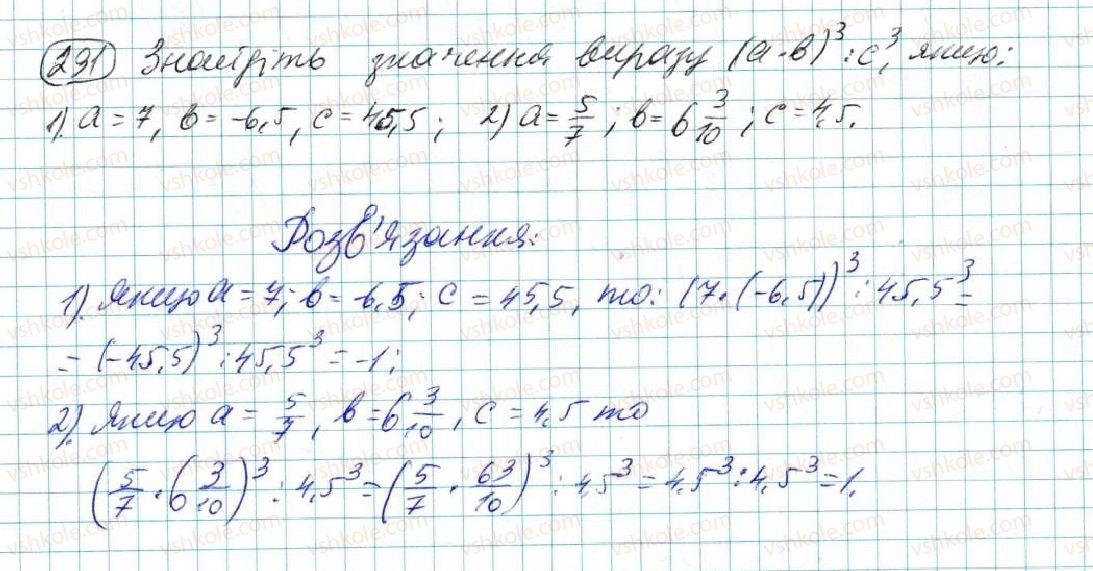 231 Знайдіть значення виразу (a·в)³:c³, якщо:
1). a = 7, в = -6,5, c = 45,5; 2) a = 5/7; в = 6 3/10; c = 4,5.
Розв'язання:
1). якщо a = 7; в = -6,5; c = 45,5, то: (7·(-6,5))³ : 45,5³ =
= (-45,5)³ : 45,5³ = -1;
2). якщо a = 5/7, в = 6 3/10, c = 4,5 то
(5/7 · 6 3/10)³ : 4,5³ = (5/7 · 63/10)³ : 4,5³ = 4,5³ : 4,5³ = 1.